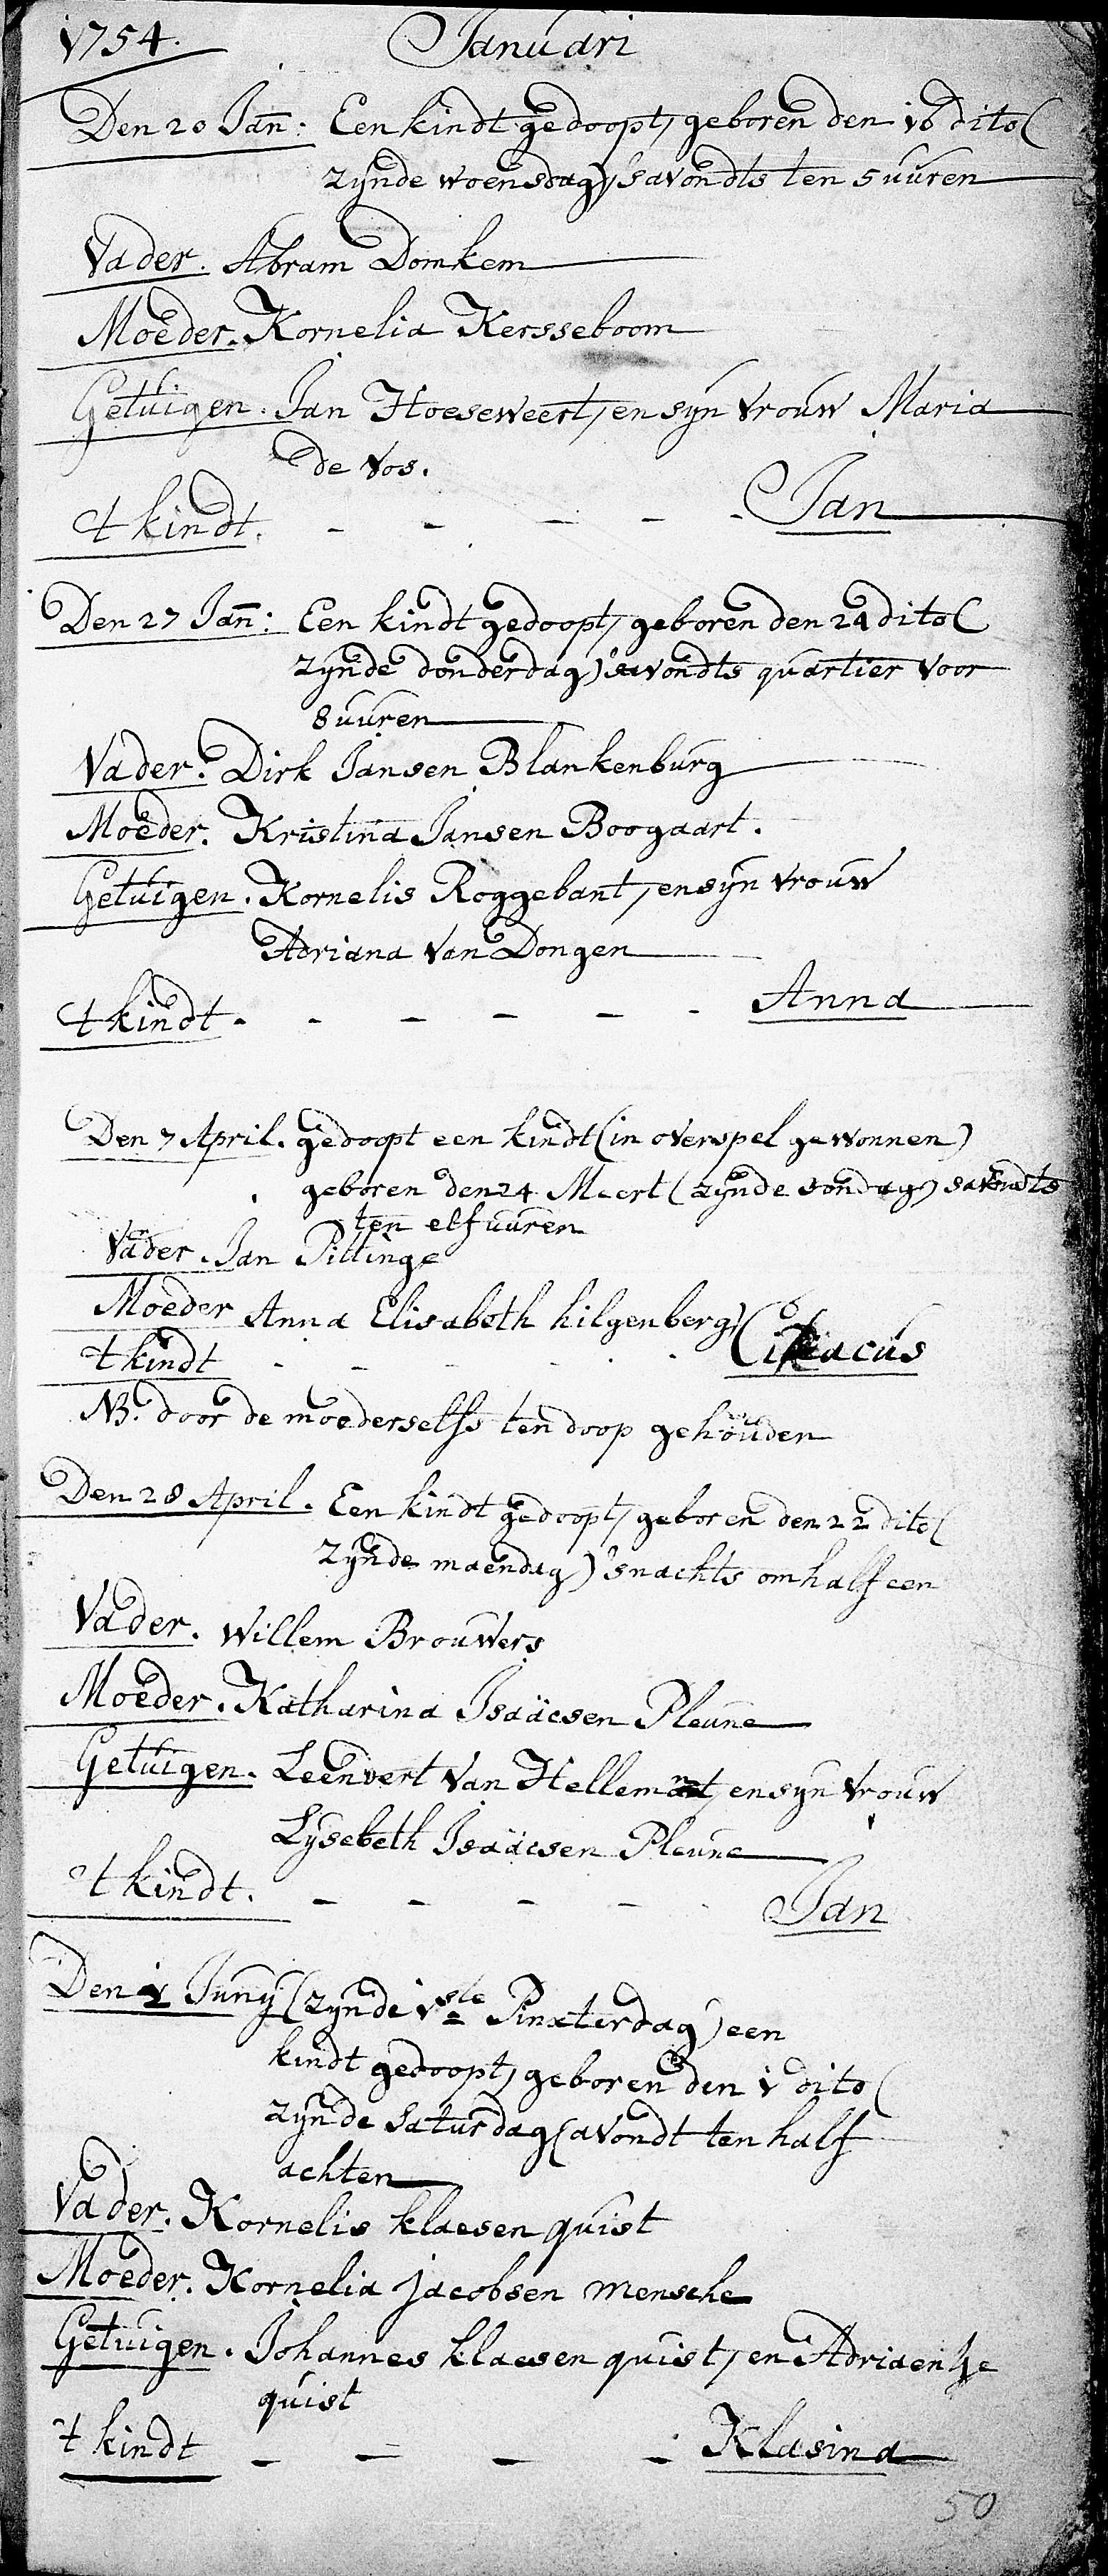 1754. Januari
Den 20 Jan̄: Een kindt gedoopt, geboren den 16 dito (
zynde woensdag) 'savondts ten 5 uuren
Vader. Abram Domkem
Moeder. Kornelia Kersseboom
Getuigen. Jan Hoeseweert, en syn vrouw Maria
de Vos.
't kindt. - - - - - Jan
Den 27 Jan̄: Een kindt gedoopt, geboren den 24 dito (
zynde donderdag) 'savondts quartier voor
8 uuren
Vader. Dirk Jansen Blankenburg
Moeder. Kristina Jansen Boogaart.
Getuigen. Kornelis Roggebant, en syn vrouw
Adriana Van Dongen
't kindt - - - - - - Anna
Den 7 April. gedoopt een kindt (in overspel gewonnen)
geboren den 24 Meert (zynde sondag) savondts
ten elf uuren
Vader. Jan Pittinge
Moeder Anna Elisabeth hilgenberg
't kindt - - - - - -
NB. door de moeder selfs ten doop gehouden
Den 28 April. Een kindt gedoopt, geboren den 22 dito (
zynde maendag) 'snachts om half een
Vader. Willem Brouwers
Moeder. Katharina Isaäcsen Pleune
Getuigen. Leendert Van Hellemont, en syn vrouw
Lysebeth Isaäcsen Pleune
't kindt. - - - - - Jan
Den 2 Juny (zynde 1ste Pinxterdag) een
kindt gedoopt, geboren den 1 dito (
zynde Saturdag (avondt ten half
achten
Vader. Kornelis klaesen quist
Moeder. Kornelia jacobsen mensche
Getuigen. Johannes klaesen quist, en Adriaentje
quist
't kindt - - - - Klasina
50